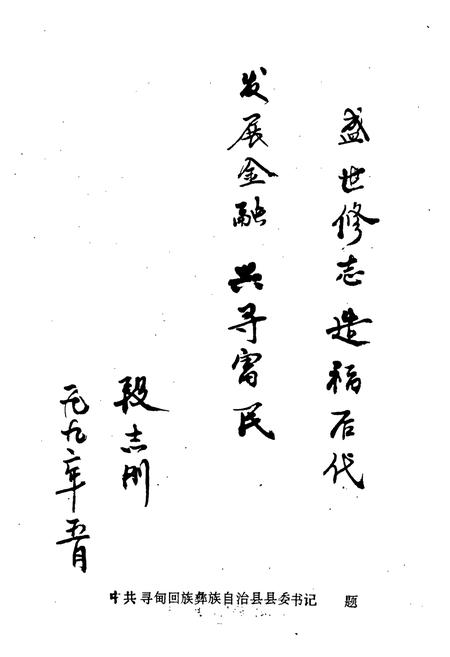 盛世修志造福后代
发展金融兴寻富民
段志刚
一九九二年五月
中共寻甸回族彝族自治县县委书记 题